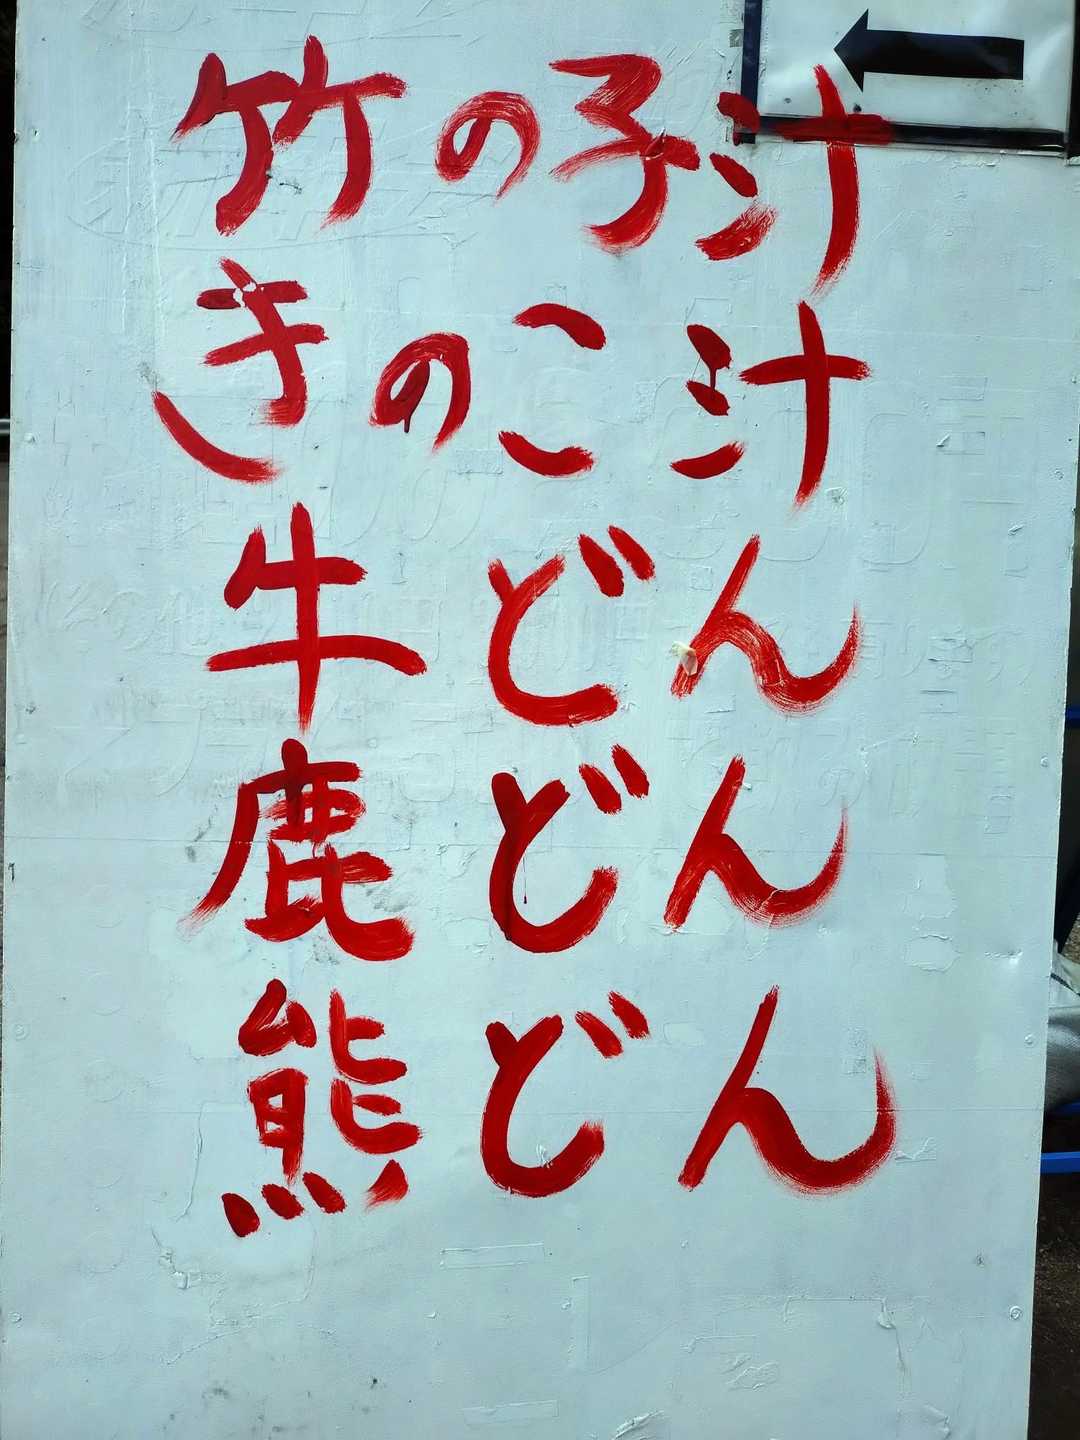 竹の子汁
きのこ汁
牛どん
鹿どん
熊どん